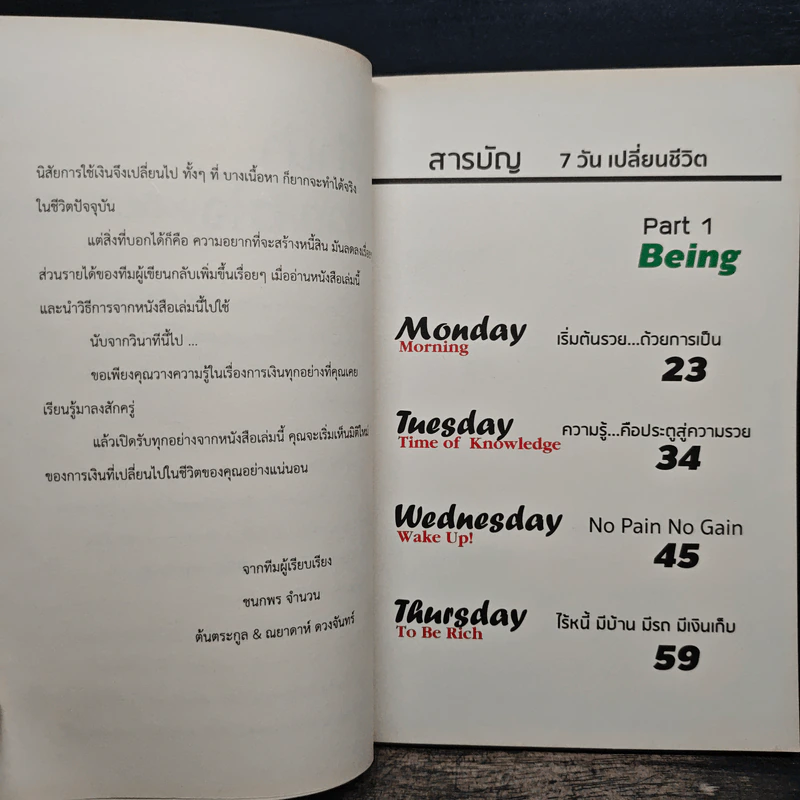 นิสัยการใช้เงินจึงเปลี่ยนไป ทั้งๆ ที่ บางเนื้อหา ก็ยากจะทำได้จริง
ในชีวิตปัจจุบัน
แต่สิ่งที่บอกได้ก็คือ ความอยากที่จะสร้างหนี้สิน มันลดลงเรื่อยๆ
ส่วนรายได้ของทีมผู้เขียนกลับเพิ่มขึ้นเรื่อยๆ เมื่ออ่านหนังสือเล่มนี้
และนำวิธีการจากหนังสือเล่มนี้ไปใช้
นับจากวินาทีนี้ไป ...
ขอเพียงคุณวางความรู้ในเรื่องการเงินทุกอย่างที่คุณเคย
เรียนรู้มาลงสักครู่
แล้วเปิดรับทุกอย่างจากหนังสือเล่มนี้ คุณจะเริ่มเห็นมิติใหม่
ของการเงินที่เปลี่ยนไปในชีวิตของคุณอย่างแน่นอน
จากทีมผู้เรียบเรียง
ชนกพร จำนวน
ต้นตระกูล & ณยาดาห์ ดวงจันทร์
สารบัญ 7 วัน เปลี่ยนชีวิต
Part 1
Being
Monday
Morning
เริ่มต้นรวย...ด้วยการเป็น
23
Tuesday
Time of Knowledge
ความรู้...คือประตูสู่ความรวย
34
Wednesday
Wake Up!
No Pain No Gain
45
Thursday
To Be Rich
ไร้หนี้ มีบ้าน มีรถ มีเงินเก็บ
59